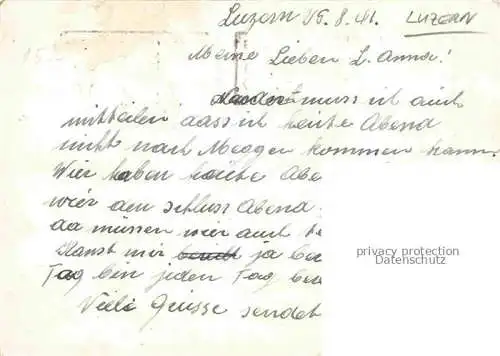 Luzern 15.8.41. LUZERN
Meine Lieben L. Anna!
Leider muss ich auch
mitteilen dass ich heute Abend
nicht nach Meggen kommen kann
Wir haben heute Abe
wier den schluss Abend
da müssen wier auch
Kanst mir ja
Tag bin jeden Tag
Viele Grüsse sendet
privacy protection
Datenschutz